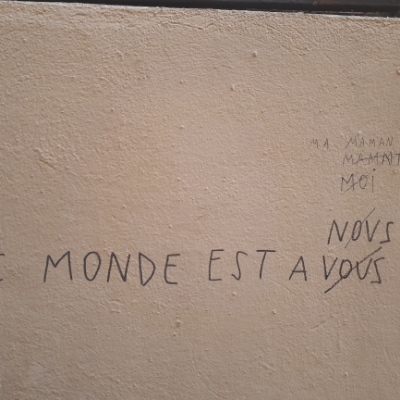 MA MAMAN
MAMAN
MOI
NOUS
E MONDE EST A VOUS